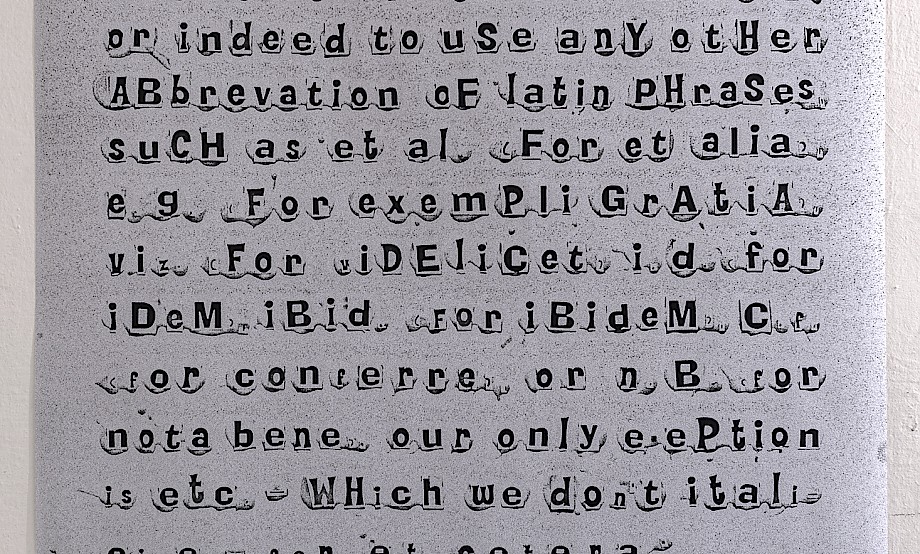 or indeed to uSe anY otHer
ABbrevation oF latin PHraSes,
suCH as et al. (For et alia),
e.g. (For exemPli GrAtiA),
viz. (For viDEliCet), i.d. (for
iDeM), iBid. (For iBideM), C.f.
(for conferre), or n.B. (for
nota bene). our only
is etc. – WHich we don't itali–